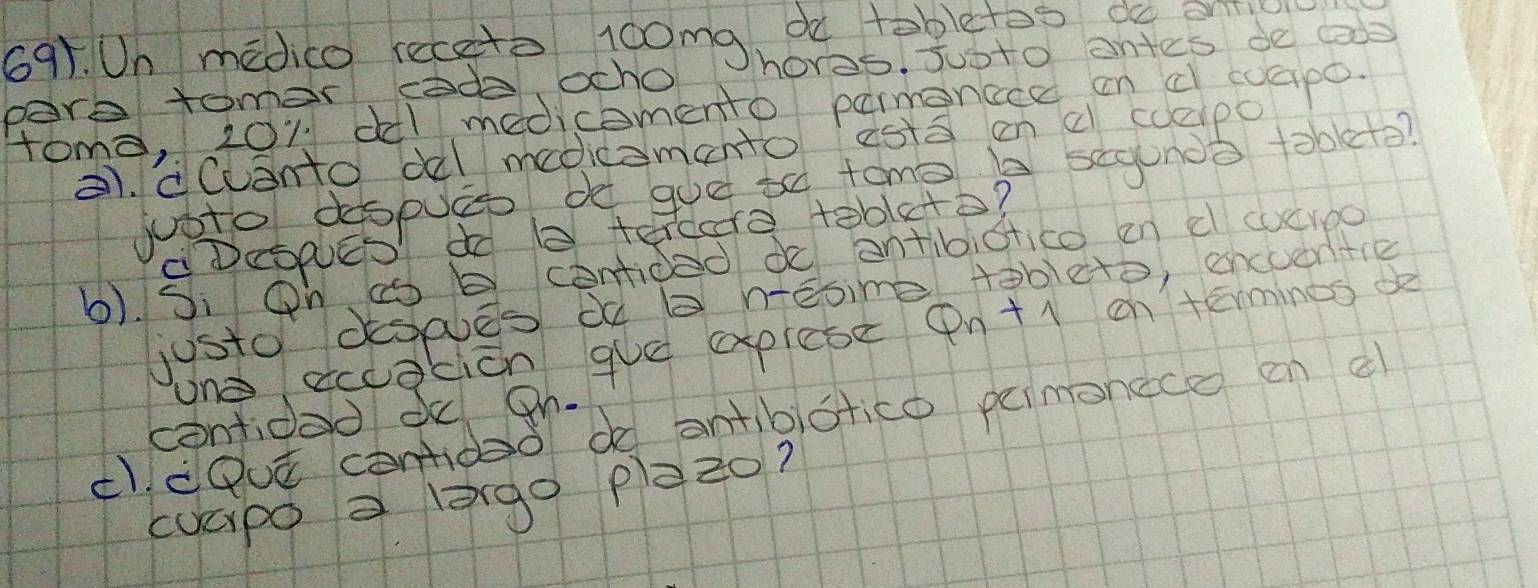 69). Un médico receta 100mg de tabletas de
para tomar cada ocho horas. Justo antes de cada
toma, 20% del medicamento permanece en el cuerpo.
a). ¿Cuánto del medicamento está en el cuerpo
justo después de que se toma la segunda tableta?
¿Después de la tercera tableta?
b). Si Qn es la cantidad de antibiótico en el cuerpo
justo después de la n-ésima tableta, encuentre
una ecuación que exprese Qn+1 en términos de
cantidad de Qn.
c). ¿Qué cantidad de antibiótico permanece en el
cuerpo a largo plazo?